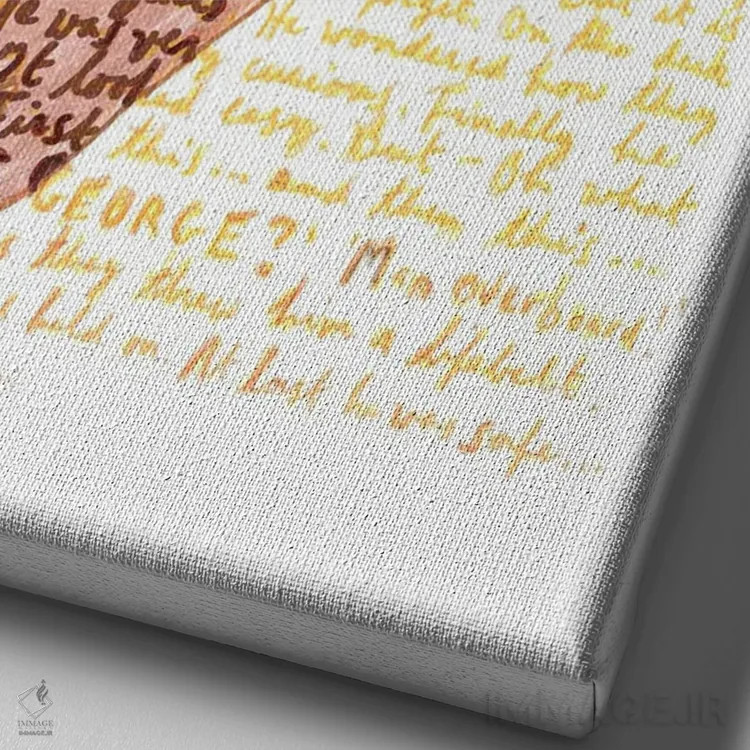 e was very
ot look
First
But it is
On the deck
He wondered how they
curious! Finally he
easy. But - Oh what
this... and then this...
GEORGE?' 'Man overboard!'
they threw him a lifebelt.
held on. At last he was safe...
IMMAGE
IMMAGE.IR
IMMAGE.IR